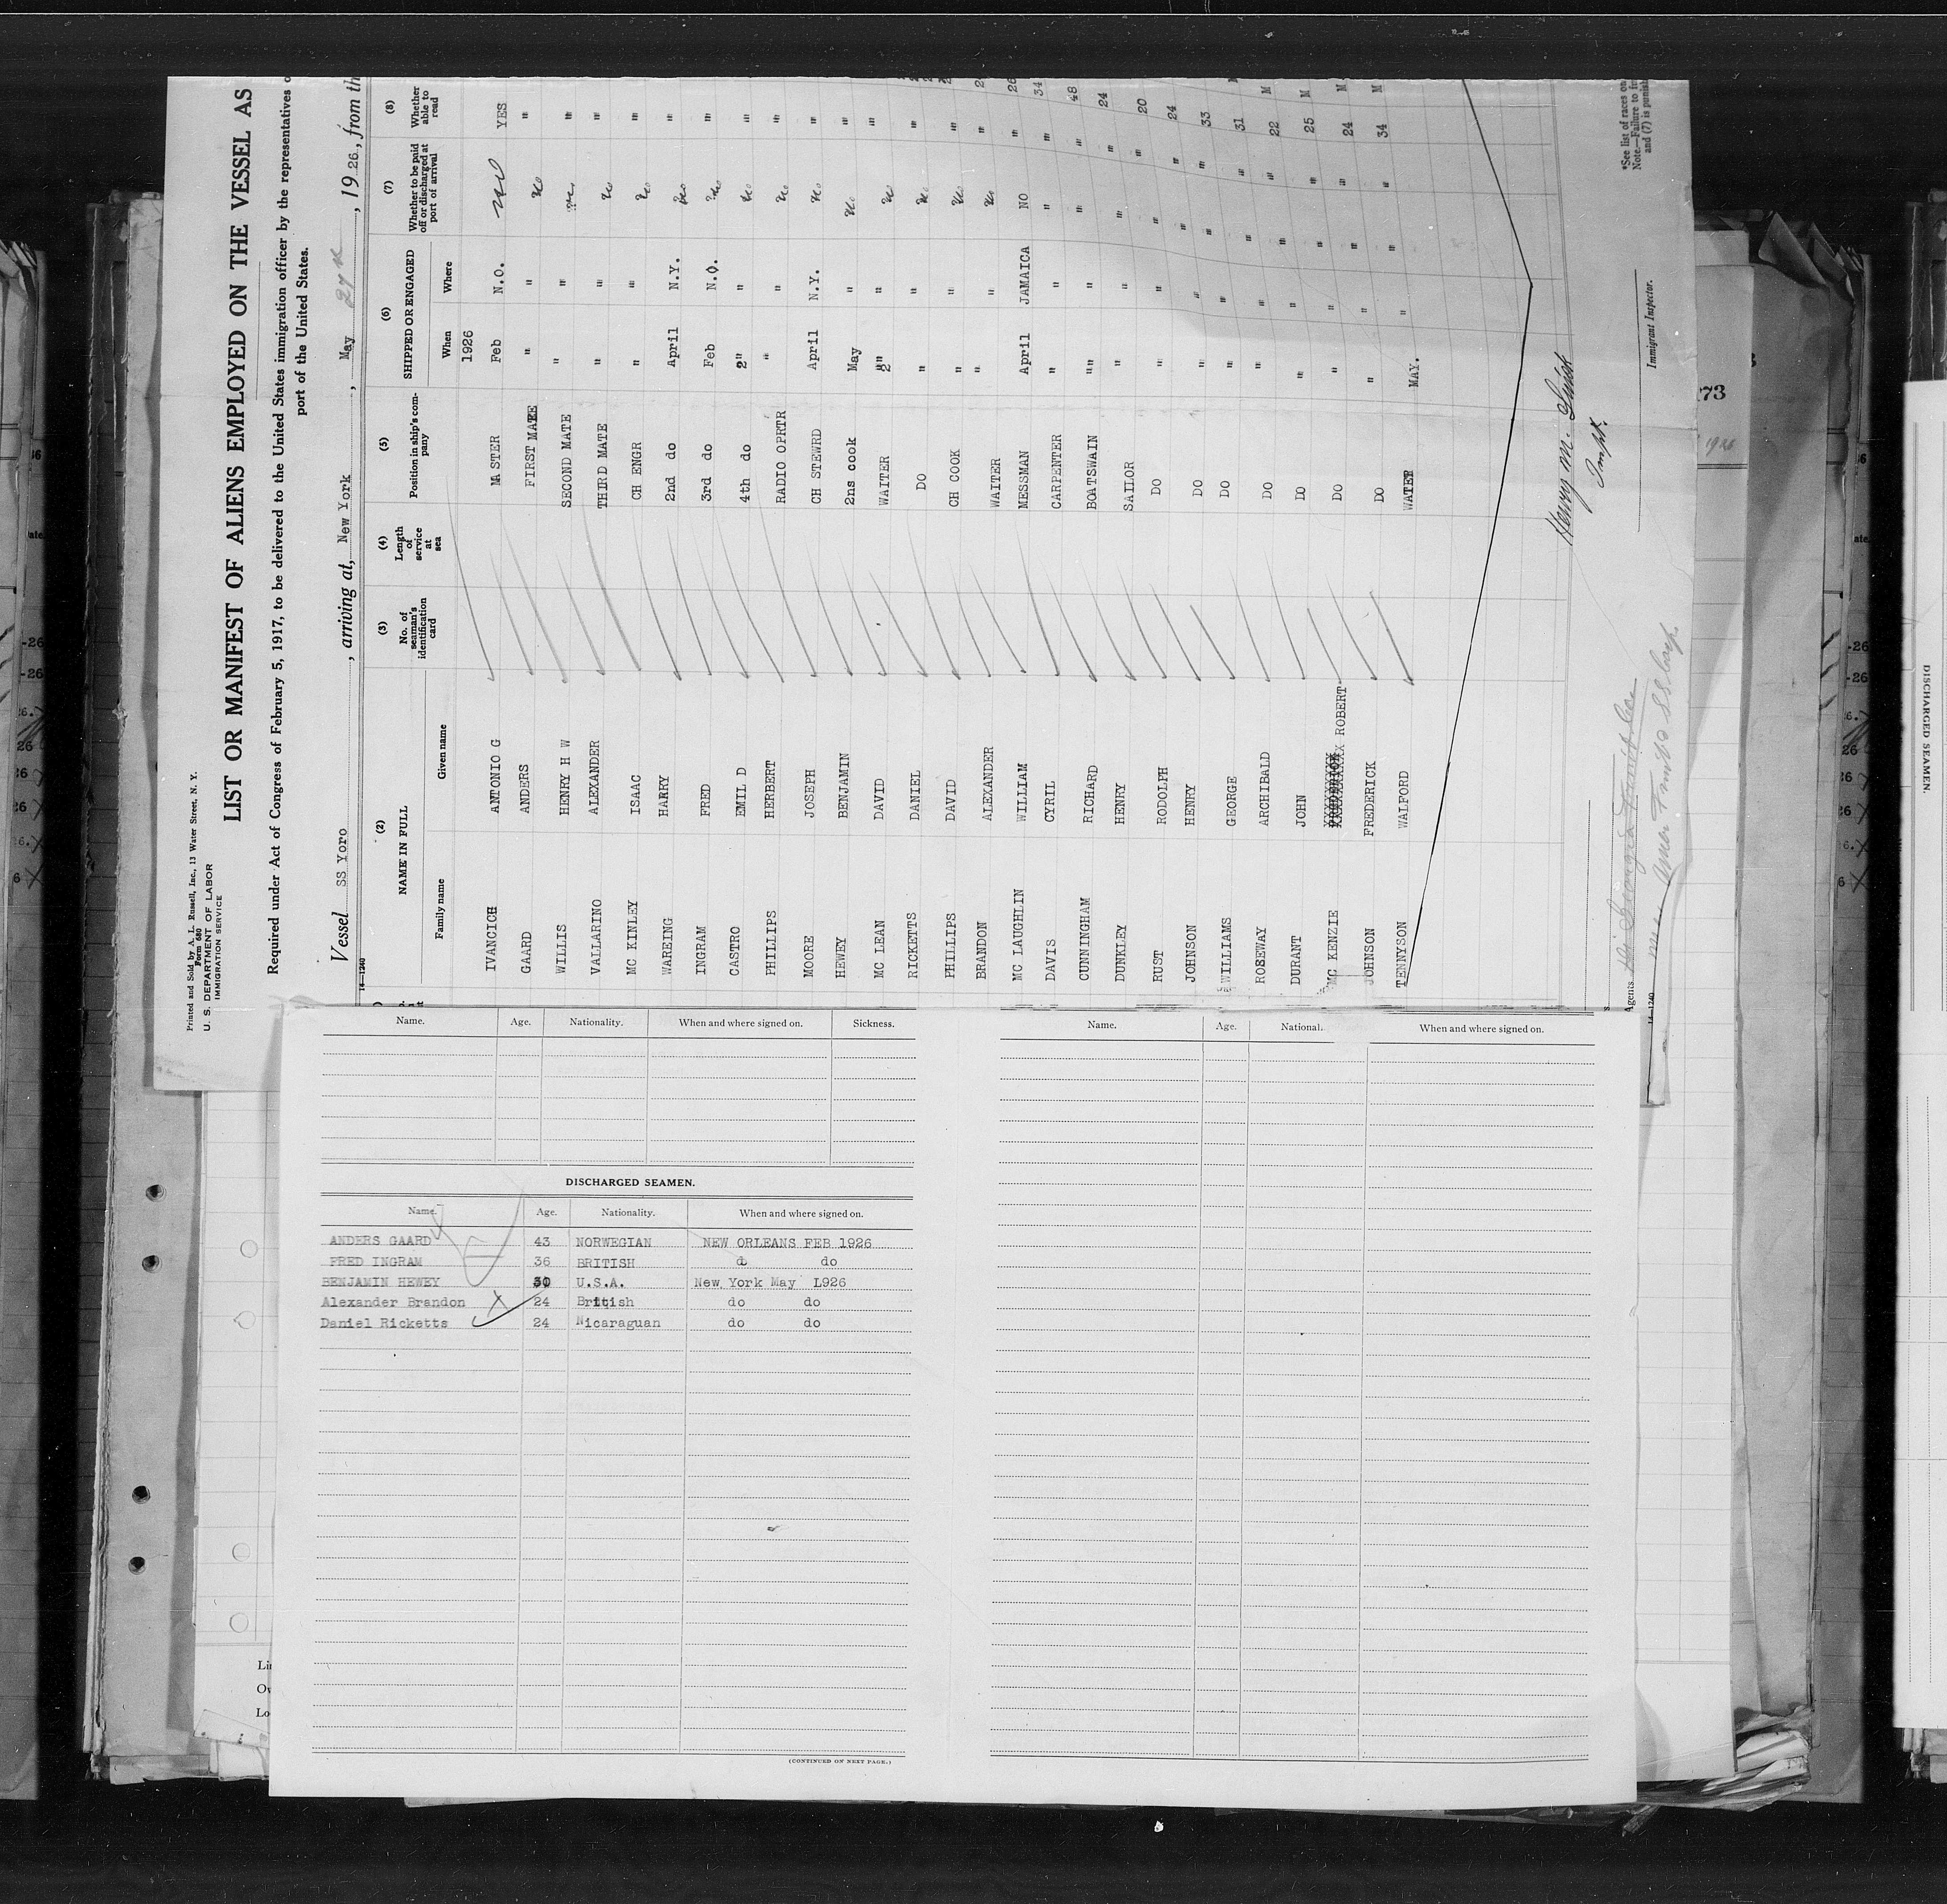 Printed and Sold by A. L. Russell, Inc., 13 Water Street, N. Y.
Form 680
U. S. DEPARTMENT OF LABOR
IMMIGRATION SERVICE
LIST OR MANIFEST OF ALIENS EMPLOYED ON THE VESSEL AS
Required under Act of Congress of February 5, 1917, to be delivered to the United States immigration officer by the representatives
port of the United States.
Vessel SS Yoro, arriving at, New York, May 27th, 1926, from th
14—1240
(2) (3) (4) (5) (6) (7) (8)
NAME IN FULL No. of seaman's identification card Length of service at sea Position in ship's company SHIPPED OR ENGAGED Whether to be paid off or discharged at port of arrival Whether able to read
Family name Given name When Where
1926
IVANCICH ANTONIO G MASTER Feb N.O. no YES
GAARD ANDERS FIRST MATE " " no "
WILLIS HENRY H W SECOND MATE " " no "
VALLARINO ALEXANDER THIRD MATE " " no "
MC KINLEY ISAAC CH ENGR " " no "
WAREING HARRY 2nd do April N.Y. no "
INGRAM FRED 3rd do Feb N.O. no "
CASTRO EMIL D 4th do 2" " no "
PHILLIPS HERBERT RADIO OPRTR " " no "
MOORE JOSEPH CH STEWRD April N.Y. no "
HEWEY BENJAMIN 2ns cook May " no "
MC LEAN DAVID WAITER 2" " no "
RICKETTS DANIEL DO " " no "
PHILLIPS DAVID CH COOK " " no "
BRANDON ALEXANDER WAITER " " no " 
MC LAUGHLIN WILLIAM MESSMAN April JAMAICA NO " 26
DAVIS CYRIL CARPENTER " " " " 34
CUNNINGHAM RICHARD BOATSWAIN " " " " 48
DUNKLEY HENRY SAILOR " " " " 24
RUST RODOLPH DO " " " " 20
JOHNSON HENRY DO " " " " 24
WILLIAMS GEORGE DO " " " " 33
ROSEWAY ARCHIBALD DO " " " " 31 M
DURANT JOHN DO " " " " 22 M
MC KENZIE ROBERT DO " " " " 25 M
JOHNSON FREDERICK DO " " " " 24 M
TENNYSON WALFORD WATER MAY. " " " 34 M
Henry M.
Inspt.
Immigrant Inspector.
*See list of races on
Note.—Failure to
and (7) is punish
Agents
14—1240
73
1926
Name. Age. Nationality. When and where signed on. Sickness.
DISCHARGED SEAMEN.
Name. Age. Nationality. When and where signed on.
ANDERS GAARD 43 NORWEGIAN NEW ORLEANS FEB 1926
FRED INGRAM 36 BRITISH do do
BENJAMIN HEWEY 30 U.S.A. New York May 1926
Alexander Brandon 24 British do do
Daniel Ricketts 24 Nicaraguan do do
(CONTINUED ON NEXT PAGE.)
Name. Age. National. When and where signed on.
DISCHARGED SEAMEN.